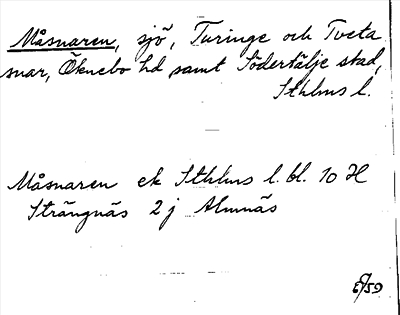 Måsnaren, sjö, Turinge och Tveta
snar, Öknebo hd samt Södertälje stad,
Sthlms l.
Måsnaren ek Sthlms l. bl. 10 H
Strängnäs 2 j Almnäs